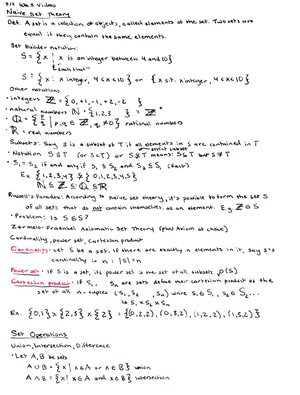 310 Wk 5 Videos
Naive Set Theory
Def. A set is a collection of objects, called elements of the set. Two sets are
equal if they contain the same elements.
Set builder notation:
S = { x | x is an integer between 4 and 10 }
"such that"
S = { x : x integer, 4 < x < 10 } or { x s.t. x integer, 4 < x < 10 }
Other notations
• integers ℤ = {0, +1, -1, +2, -2 }
• natural numbers ℕ = {1, 2, 3 } = ℤ⁺
• ℚ = { p/q | p, q ∈ ℤ, q ≠ 0 } rational numbers
• ℝ = real numbers
Subsets: Say S is a subset of T if all elements in S are contained in T
strict subset
• Notation S ⊆ T (or S ⊂ T) or S ⊊ T means: S ⊆ T but S ≠ T
• S₁ = S₂ if and only if S₁ ⊆ S₂ and S₂ ⊆ S₁ (fact)
Ex {1, 2, 3, 4} ⊊ {0, 1, 2, 3, 4, 5}
ℕ ⊆ ℤ ⊆ ℚ ⊆ ℝ
Russell's Paradox: According to naive set theory, it's possible to form the set S
of all sets that do not contain themselves, as an element. E.g. ℤ ∈ S
• Problem: Is S ∈ S?
Zermelo-Fraenkel Axiomatic Set Theory (plus Axiom of Choice)
Cardinality, power set, Cartesian product
Cardinality: Let S be a set. If there are exactly n elements in it, say S's
cardinality is n : |S| = n
Power set: If S is a set, its power set is the set of all subsets ℘(S)
Cartesian product: if S₁, Sₙ are sets define their cartesian product as the
set of all n-tuples (s₁, s₂, sₙ) where s₁ ∈ S₁, s₂ ∈ S₂...
↳ S₁ × S₂ × Sₙ
Ex. {0,1} × {2,3} × {2} = {(0,2,2), (0,3,2), (1,2,2), (1,3,2)}
Set Operations
Union, Intersection, Difference
• Let A, B be sets
A ∪ B = { x | x ∈ A or x ∈ B } union
A ∩ B = { x | x ∈ A and x ∈ B } intersection